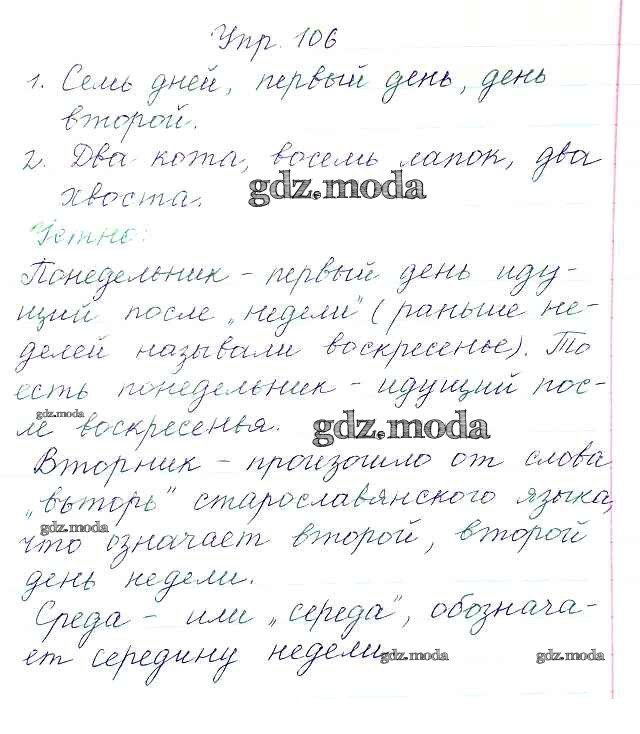 Упр. 106
1. Семь дней, первый день, день
второй.
2. Два кота, восемь лапок, два
хвоста.
gdz.moda
Устно:
Понедельник - первый день иду-
щий после „недели" (раньше не-
делей называли воскресенье). То
есть понедельник - идущий пос-
gdz.moda
ле воскресенья.
gdz.moda
Вторник - произошло от слова
„вьторь" старославянского языка,
gdz.moda
что означает второй, второй
день недели.
Среда - или „середа", обознача-
ет середину недели.
gdz.moda
gdz.moda